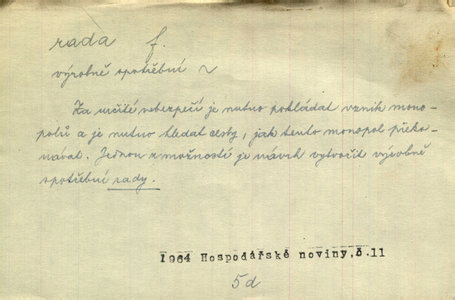 rada f.
výrobně spotřební ~
Za určité nebezpečí je nutno pokládat vznik mono-
polů a je nutno hledat cesty, jak tento monopol překo-
návat. Jednou z možností je návrh vytvořit výrobně
spotřební rady.
1964 Hospodářské noviny, č. 11
5d